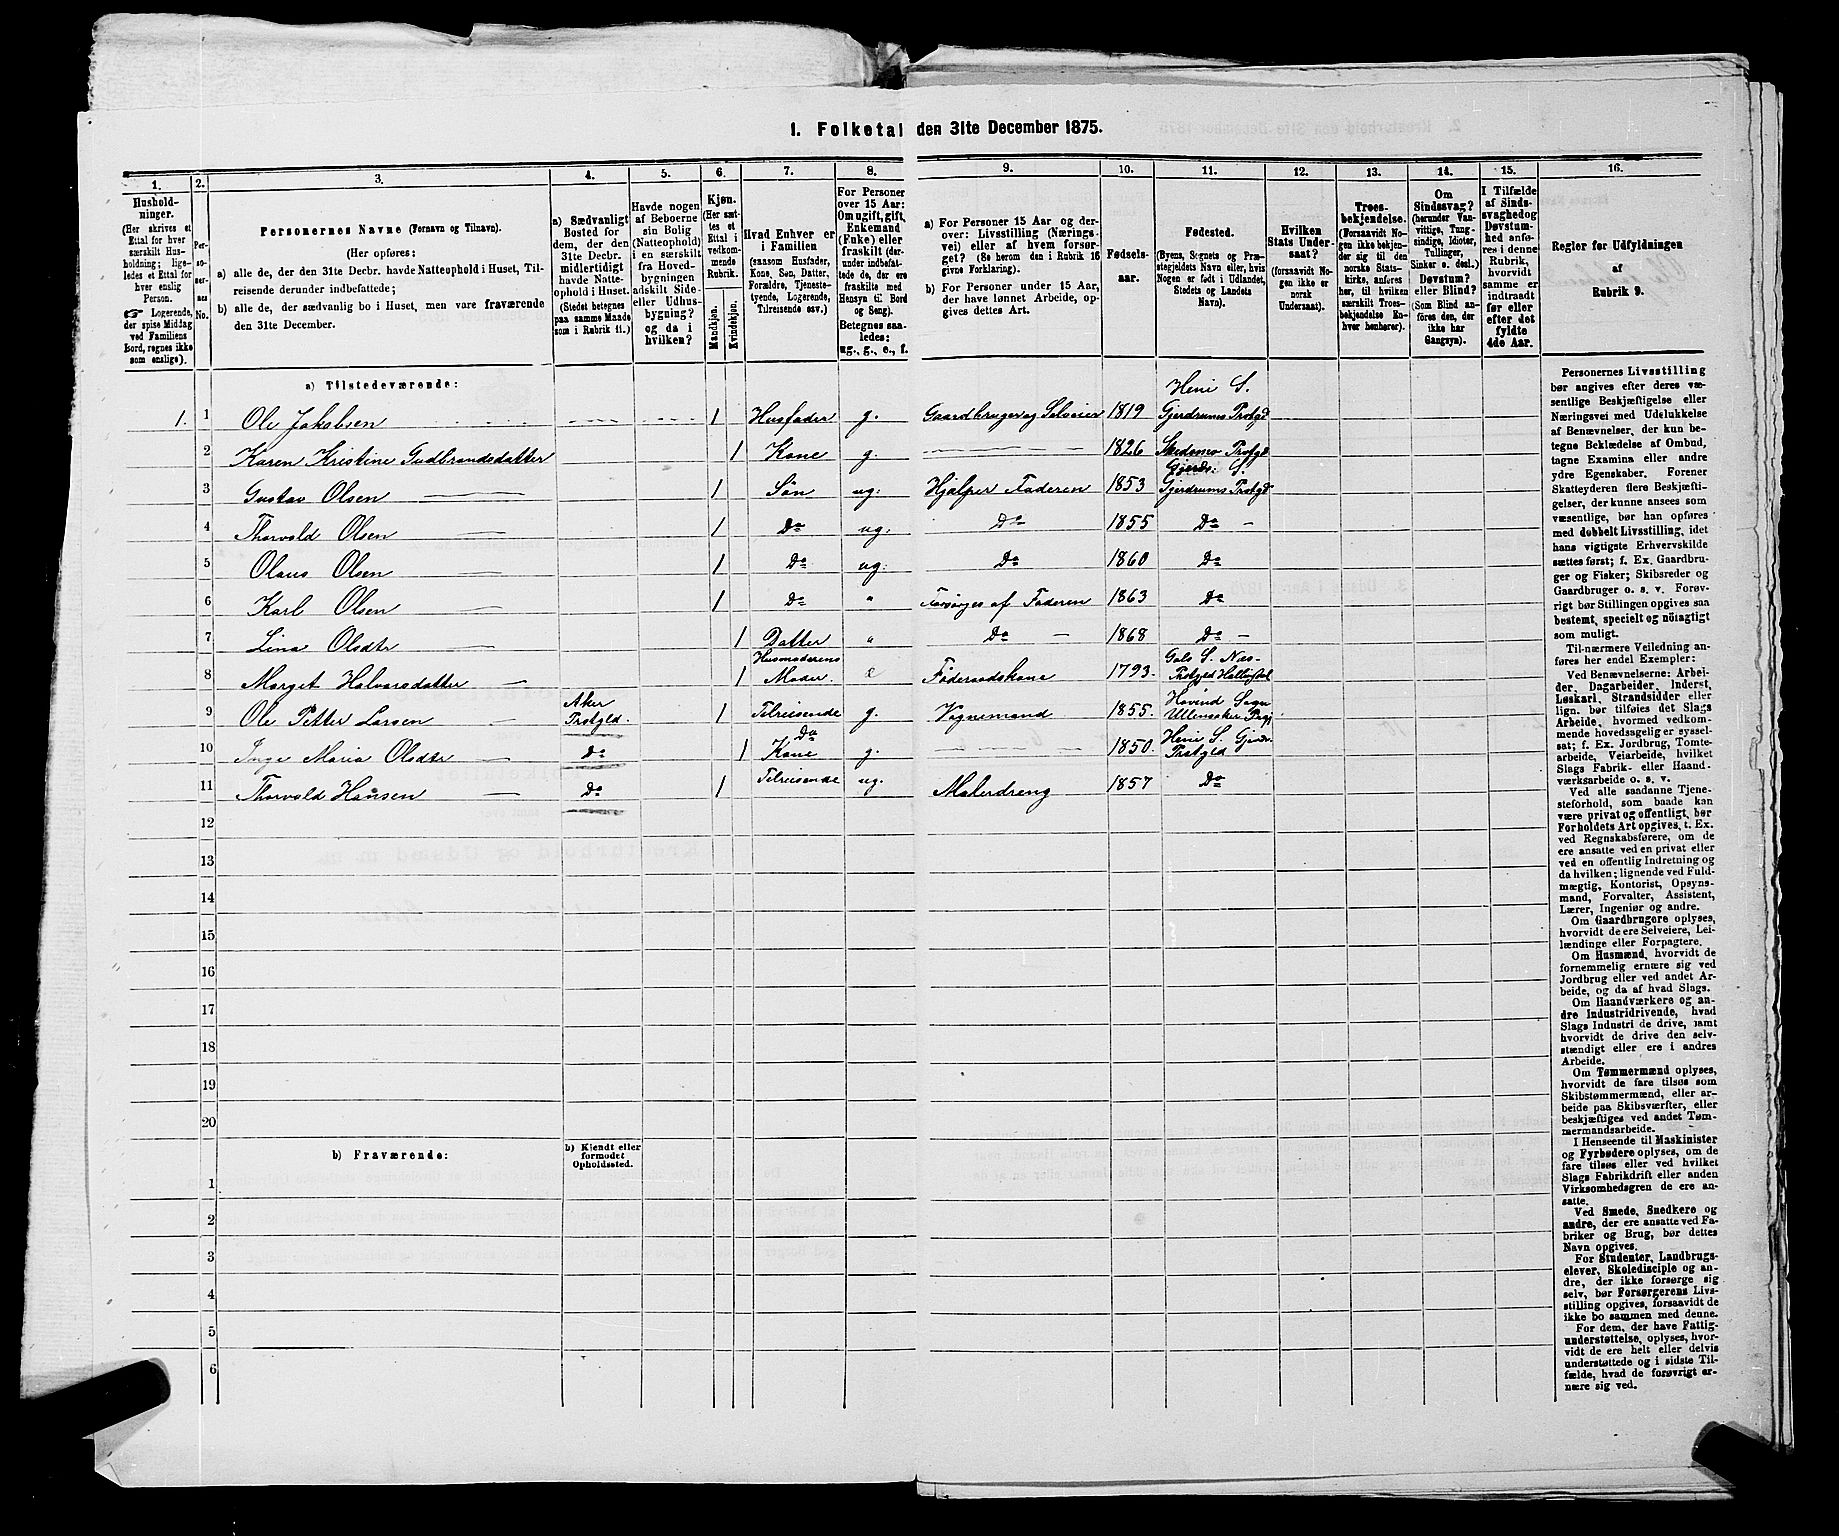 1. Folketal den 31te December 1875.
1.
2.
3.
4.
5.
6.
7.
8.
9.
10.
11.
12.
13.
14.
15.
16.
Hushold-
ninger.
(Her skrives et
Ettal for hver
særskilt Hus-
holdning; lige-
ledes et Ettal for
hver enslig
Person.
☞ Logerende,
der spise Middag
ved Familiens
Bord, regnes ikke
som enslige).
Per-
so-
ner-
nes
No.
Personernes Navne (Fornavn og Tilnavn).
(Her opføres:
a) alle de, der den 31te Decbr. havde Natteophold i Huset, Til-
reisende derunder indbefattede;
b) alle de, der sædvanlig bo i Huset, men vare fraværende
den 31te December.
a) Sædvanligt
Bosted for
dem, der den
31te Decbr.
midlertidigt
havde Natte-
ophold i Huset.
(Stedet betegnes
paa samme Maade
som i Rubrik 11.)
Havde nogen
af Beboerne
sin Bolig
(Natteophold)
i en særskilt
fra Hoved-
bygningen
adskilt Side-
eller Udhus-
bygning?
og da i
hvilken?
Kjøn.
(Her sæt-
tes et
Ettal i
vedkom-
mende
Rubrik.
Mandkjøn.
Kvindekjøn.
Hvad Enhver er
i Familien
(saasom Husfader,
Kone, Søn, Datter,
Forældre, Tjeneste-
tyende, Logerende,
Tilreisende osv.)
For Personer
over 15 Aar:
Om ugift, gift,
Enkemand
(Enke) eller
fraskilt (der-
under indbefat-
tede de, der ere
fraskilte med
Hensyn til Bord
og Seng).
Betegnes saa-
ledes:
ug., g., e., f.
a) For Personer 15 Aar og der-
over: Livsstilling (Nærings-
vei) eller af hvem forsør-
get? (Se herom den i Rubrik 16
givne Forklaring).
b) For Personer under 15 Aar,
der have lønnet Arbeide, op-
gives dettes Art.
Fødsels-
aar.
Fødested.
(Byens, Sognets og Præ-
stegjeldets Navn eller, hvis
Nogen er født i Udlandet,
Stedets og Landets
Navn).
Hvilken
Stats Under-
saat?
(forsaavidt No-
gen ikke er
norsk
Undersaat).
Troes-
bekjendelse.
(Forsaavidt No-
gen ikke bekjen-
der sig til den
norske Stats-
kirke, anføres
her, til hvilken
særskilt Troes-
bekjendelse En-
hver henhører).
Om
Sindssvag?
(herunder Van-
vittige, Tung-
sindige, Idioter,
Tullinger,
Sinker o. desl.)
Døvstum?
eller Blind?
(Som Blind an-
føres den, der
ikke har
Gangsyn).
I Tilfælde
af Sinds-
svaghed og
Døvstum-
hed anfø-
res i denne
Rubrik,
hvorvidt
samme er
indtraadt
før eller
efter det
fyldte
4de Aar.
Regler for Udfyldningen
af
Rubrik 9.
a) Tilstedeværende:
1. 1 Ole Jakobsen 1 Husfader g. Gaardbruger og Selveier 1819 Heni S. Gjerdrums Prstgd
2 Karen Kristine Gudbrandsdatter 1 Kone g. 1826 Skedsmo Prstgd
3 Gustav Olsen 1 Søn ug: Hjælper Faderen 1853 Gjerdr: S. Gjerdrums Prstgd
4 Thorvald Olsen 1 Do ug: Do 1855 Do
5 Olaus Olsen 1 Do ug: Do 1860 Do
6 Karl Olsen 1 Do " Forsørges af Faderen 1863 Do
7 Lina Olsdtr 1 Datter " Do 1868 Do
8 Marget Halvorsdatter 1 Husmoderens Moder. e Føderaadskone 1793. Gols S. Næs- Prstgjeld Hallingdal
9 Ole Petter Larsen Aker Prstgld. 1 Tilreisende g. Vognmand 1855. Hovind Sogn Ullensaker Prgj
10 Inge Maria Olsdtr Do 1 Do Kone g. 1850. Heni S. Gjerdr. Prstgld
11 Thorvald Hansen Do 1 Tilreisende ug. Malerdreng 1857 Do
12
13
14
15
16
17
18
19
20
b) Fraværende:
b) Kjendt eller
formodet
Opholdssted.
1
2
3
4
5
6
Personernes Livsstilling
bør angives efter deres væ-
sentlige Beskjæftigelse eller
Næringsvei med Udelukkelse
af Benævnelser, der kun be-
tegne Beklædelse af Ombud,
tagne Examina eller andre
ydre Egenskaber. Forener
Skatteyderen flere Beskjæfti-
gelser, der kunne ansees som
væsentlige, bør han opføres
med dobbelt Livsstilling, idet
hans vigtigste Erhvervskilde
sættes først; f. Ex. Gaardbru-
ger og Fisker; Skibsreder og
Gaardbruger o. s. v. Forøv-
rigt bør Stillingen opgives saa
bestemt, specielt og nøiagtigt
som muligt.
Til-nærmere Veiledning an-
føres her endel Exempler:
Ved Benævnelserne: Arbei-
der, Dagarbeider, Inderst,
Løskarl, Strandsidder eller
lign. bør tilføies det Slags
Arbeide, hvormed vedkom-
mende hovedsagelig er syssel-
sat; f. Ex. Jordbrug, Tomte-
arbeide, Veiarbeide, hvilket
Slags Fabrik- eller Haand-
værksarbeide o. s. v.
Ved alle saadanne Tjene-
steforhold, som baade kan
være privat og offentligt, bør
Forholdets Art opgives, t. Ex.
ved Regnskabsførere, om de
ere ansatte ved en privat eller
ved en offentlig Indretning og
da hvilken; lignende ved Fuld-
mægtig, Kontorist, Opsyns-
mand, Forvalter, Assistent,
Lærer, Ingeniør og andre.
Om Gaardbrugere oplyses,
hvorvidt de ere Selveiere, Lei-
lændinge eller Forpagtere.
Om Husmænd, hvorvidt de
fornemmelig ernære sig ved
Jordbrug eller ved andet Ar-
beide, og da af hvad Slags.
Om Haandværkere og an-
dre Industridrivende, hvad
Slags Industri de drive, samt
hvorvidt de drive den selv-
stændigt eller ere i andres
Arbeide.
Om Tømmermænd oplyses,
hvorvidt de fare tilsøs som
Skibstømmermænd, eller ar-
beide paa Skibsværfter, eller
beskjæftiges ved andet Tøm-
mermandsarbeide.
I Henseende til Maskinister
og Fyrbødere oplyses, om de
fare tilsøs eller ved hvilket
Slags Fabrikdrift eller anden
Virksomhedsgren de ere an-
satte.
Ved Smede, Snedkere og
andre, der ere ansatte ved Fa-
briker og Brug, bør dettes
Navn opgives.
For Studenter, Landbrugs-
elever, Skoledisciple og an-
dre, der ikke forsørge sig
selv, bør Forsørgerens Livs-
stilling opgives, forsaavidt de
ikke bo sammen med denne.
For dem, der have Fattig-
understøttelse, oplyses, hvor-
vidt de ere helt eller delvis
understøttede og i sidste Til-
fælde, hvad de forøvrigt er-
nære sig ved.